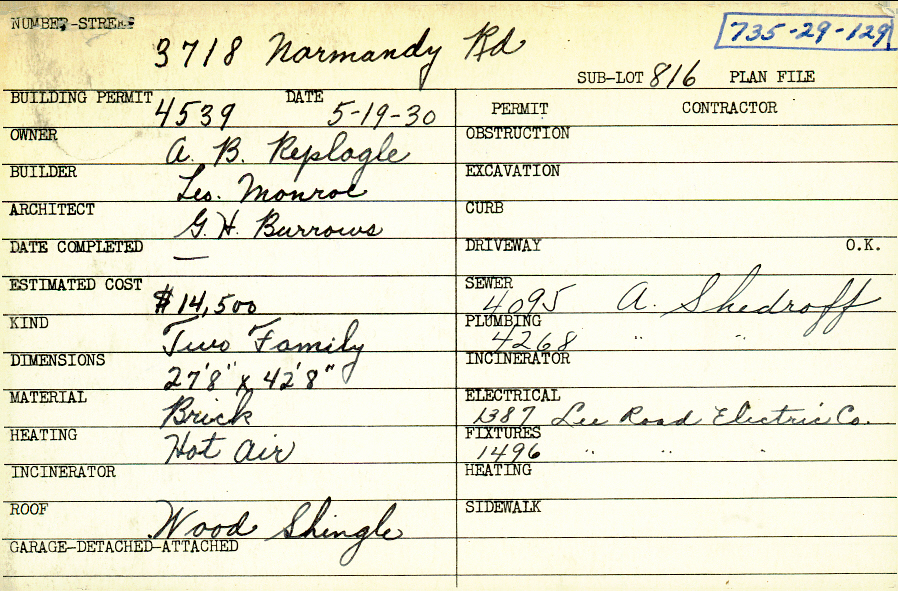 NUMBER-STREET
3718 Normandy Rd
735-29-129
SUB-LOT 816 PLAN FILE
BUILDING PERMIT 4539 DATE 5-19-30
PERMIT CONTRACTOR
OWNER A. B. Replogle
OBSTRUCTION
BUILDER Leo. Monroe
EXCAVATION
ARCHITECT G. H. Burrows
CURB
DATE COMPLETED —
DRIVEWAY O.K.
ESTIMATED COST $14,500
SEWER 4095 A. Shedroff
KIND Two Family
PLUMBING 4268 " "
DIMENSIONS 27'8" x 42'8"
INCINERATOR
MATERIAL Brick
ELECTRICAL 1387 Lee Road Electric Co.
HEATING Hot Air
FIXTURES 1496 " " "
INCINERATOR
HEATING
ROOF Wood Shingle
SIDEWALK
GARAGE-DETACHED-ATTACHED